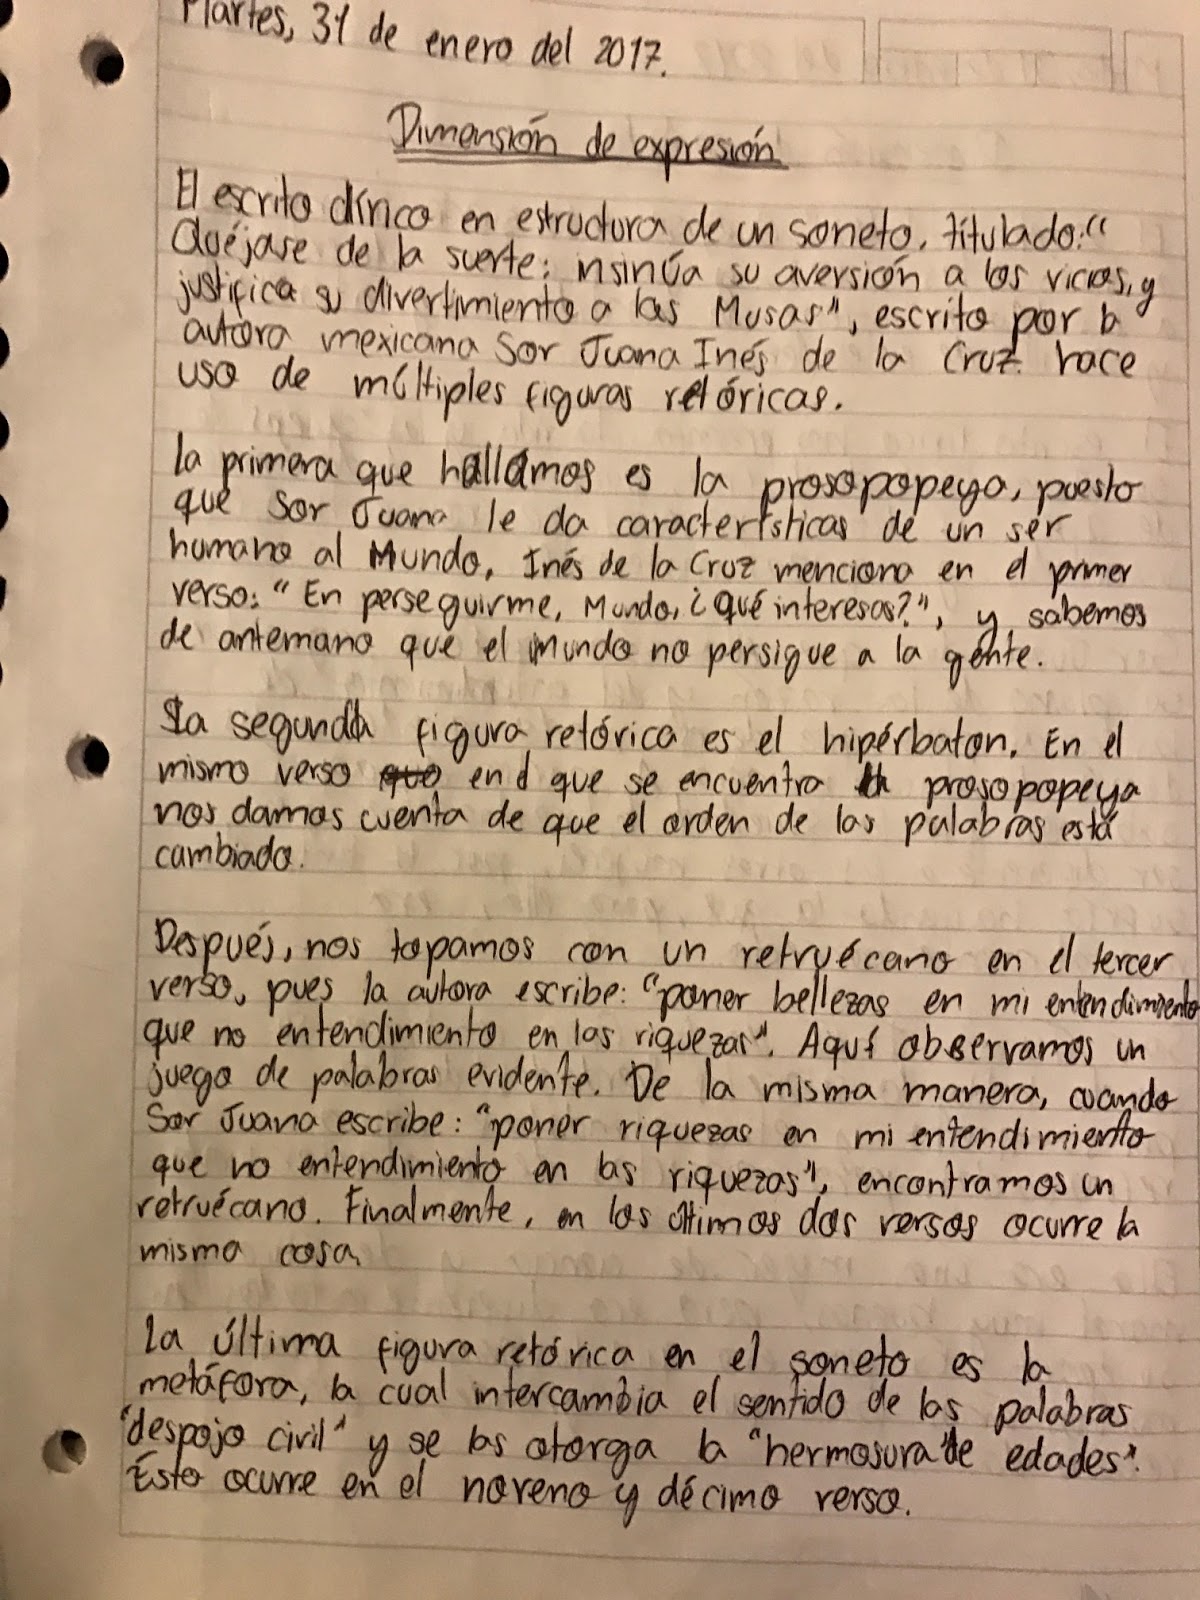 Martes, 31 de enero del 2017.
Dimensión de expresión
El escrito lírico en estructura de un soneto, títulado: "
Quéjase de la suerte: insinúa su aversión a los vicios, y
justifica su divertimiento a las Musas", escrito por la
autora mexicana Sor Juana Inés de la Cruz hace
uso de múltiples figuras retóricas.
La primera que hallamos es la prosopopeya, puesto
que Sor Juana le da características de un ser
humano al Mundo, Inés de la Cruz menciona en el primer
verso: "En perseguirme, Mundo, ¿qué interesas?", y sabemos
de antemano que el mundo no persigue a la gente.
La segunda figura retórica es el hipérbaton. En el
mismo verso que en el que se encuentra la prosopopeya
nos damos cuenta de que el orden de las palabras está
cambiado.
Después, nos topamos con un retruécano en el tercer
verso, pues la autora escribe: "poner bellezas en mi entendimiento
que no entendimiento en las riquezas". Aquí observamos un
juego de palabras evidente. De la misma manera, cuando
Sor Juana escribe: "poner riquezas en mi entendimiento
que no entendimiento en las riquezas", encontramos un
retruécano. Finalmente, en los últimos dos versos ocurre la
misma cosa.
La última figura retórica en el soneto es la
metáfora, la cual intercambia el sentido de las palabras
"despojo civil" y se las otorga la "hermosura de edades".
Esto ocurre en el noveno y décimo verso.